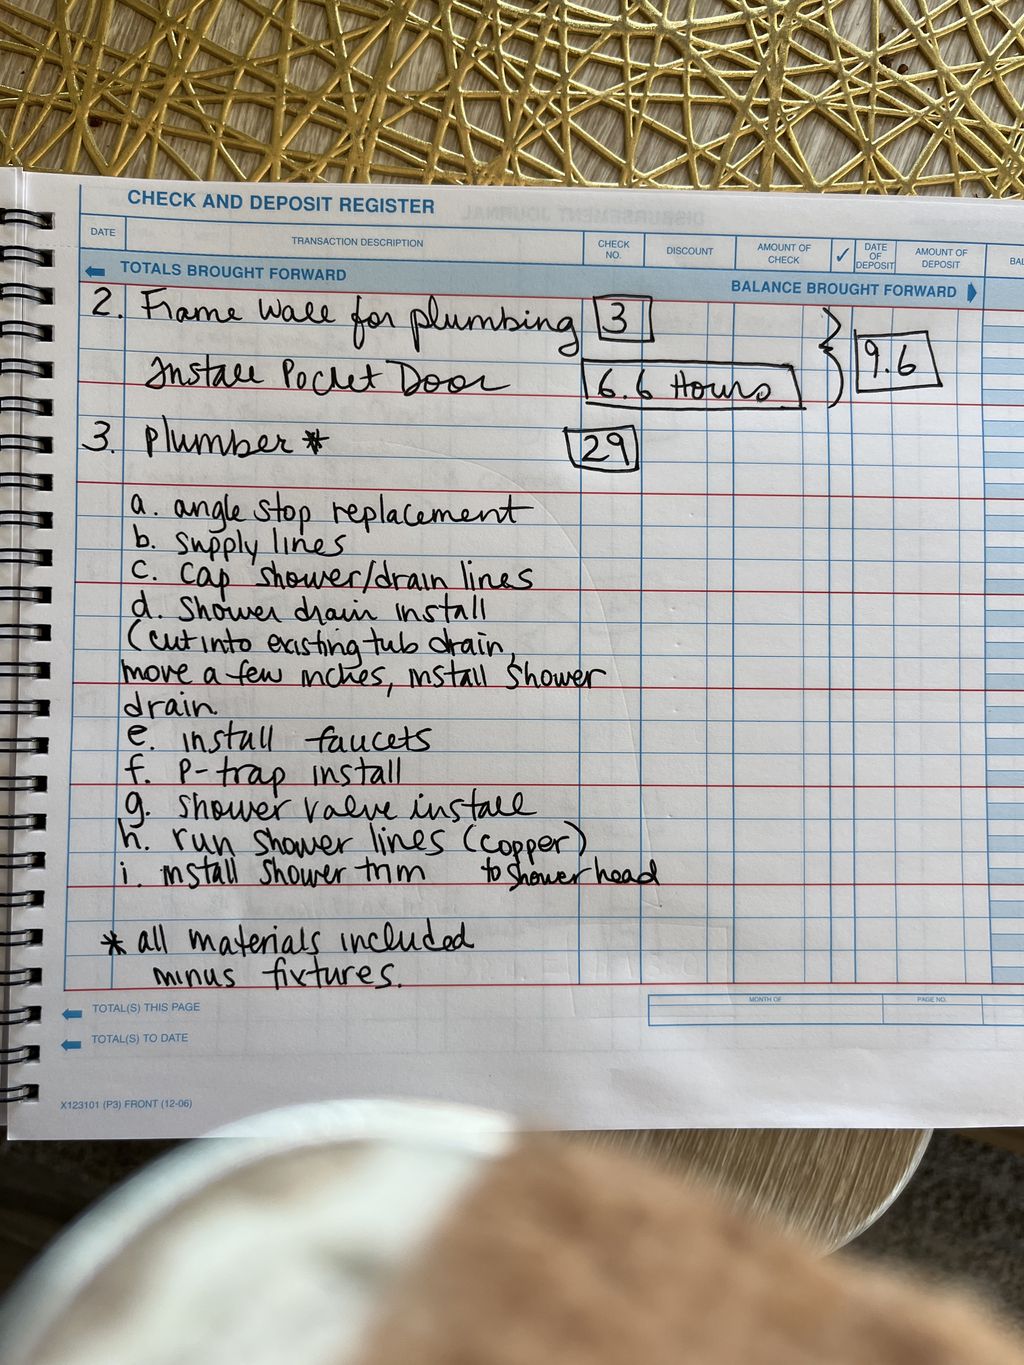 CHECK AND DEPOSIT REGISTER
DATE TRANSACTION DESCRIPTION CHECK NO. DISCOUNT AMOUNT OF CHECK ✓ DATE OF DEPOSIT AMOUNT OF DEPOSIT BAL
TOTALS BROUGHT FORWARD BALANCE BROUGHT FORWARD
2. Frame Wall for plumbing 3
Install Pocket Door 6.6 Hours 9.6
3. Plumber* 29
a. angle stop replacement
b. supply lines
c. cap shower/drain lines
d. Shower drain install
(cut into existing tub drain,
move a few inches, install shower
drain.
e. install faucets
f. P-trap install
g. shower valve install
h. run shower lines (copper)
i. install shower trim to shower head
* all materials included
minus fixtures.
TOTAL(S) THIS PAGE MONTH OF PAGE NO.
TOTAL(S) TO DATE
X123101 (P3) FRONT (12-06)